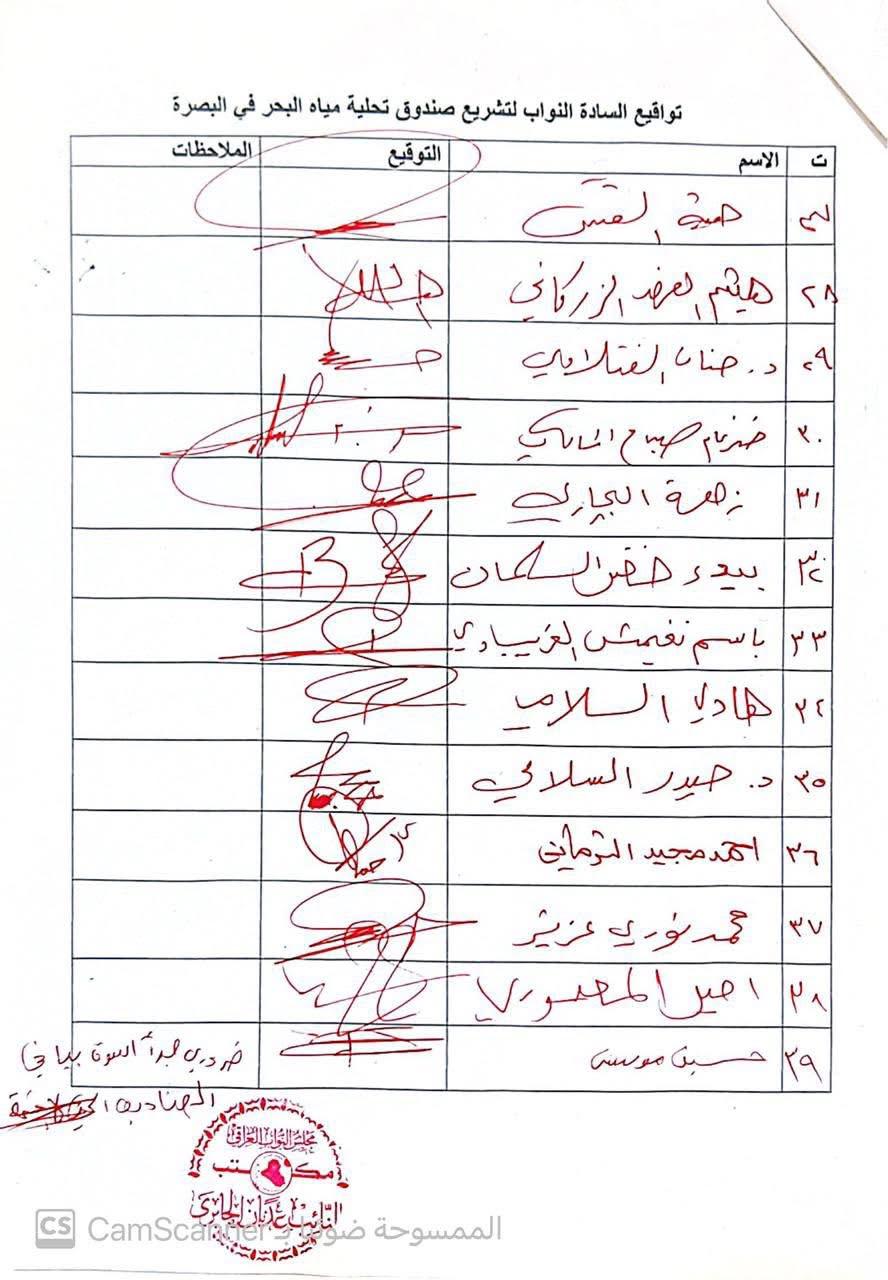 تواقيع السادة النواب لتشريع صندوق تحلية مياه البحر في البصرة
ت الاسم التوقيع الملاحظات
٢٧
٢٨ هيثم الزركاني
٢٩ د. حنان الفتلاوي
٣٠ ضرغام صباح المالكي
٣١ زهرة البچاري
٣٢ بيداء خضر السلمان
٣٣ باسم نغيمش الغريباوي
٣٤ هادي السلامي
٣٥ د. حيدر السلامي
٣٦ احمد مجيد
٣٧ محمد نوري عزيز
٣٨ المنصوري
٣٩ حسين موسى
ضروري مبدأ اسوة بباقي
مجلس النواب العراقي
مكتب
النائب عدنان الجابري
CS CamScanner الممسوحة ضوئيا بـ